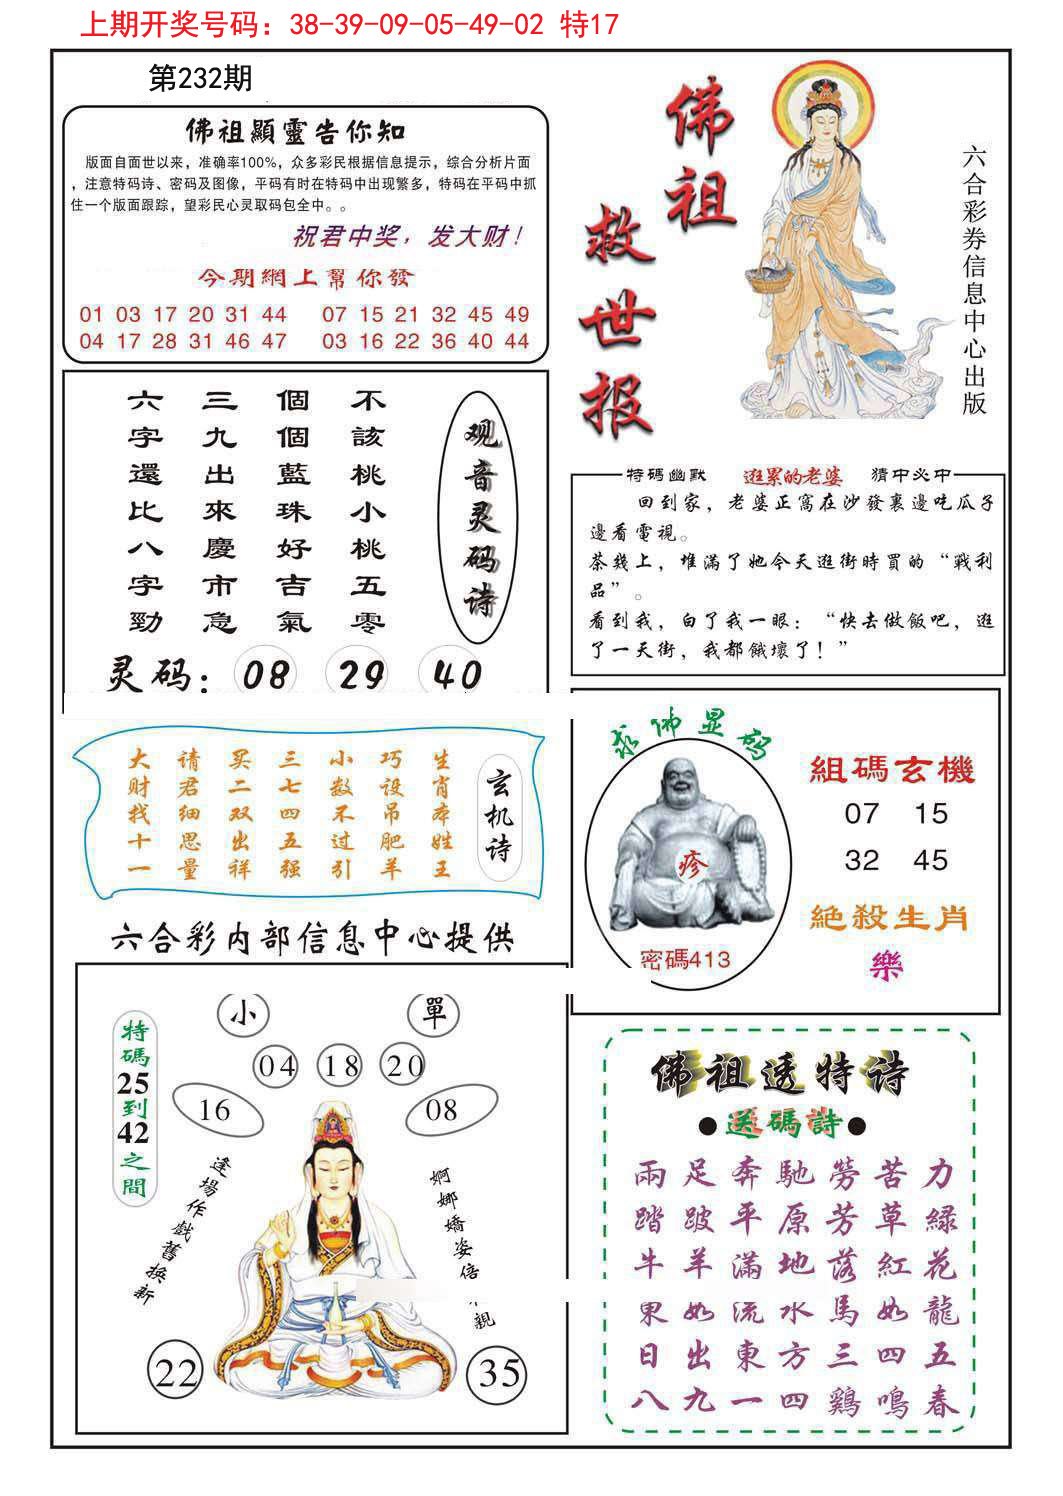 上期开奖号码：38-39-09-05-49-02 特17
第232期
佛祖顯靈告你知
版面自面世以来，准确率100%，众多彩民根据信息提示，综合分析片面
，注意特码诗、密码及图像，平码有时在特码中出现繁多，特码在平码中抓
住一个版面跟踪，望彩民心灵取码包全中。。
祝君中奖，发大财！
今期網上幫你發
01 03 17 20 31 44 07 15 21 32 45 49
04 17 28 31 46 47 03 16 22 36 40 44
佛祖
救世报
六合彩券信息中心出版
观音灵码诗
不該桃小桃五零
個個藍珠好吉氣
三九出來慶市急
六字還比八字勁
灵码：08 29 40
特碼幽默 逛累的老婆 猜中必中
回到家，老婆正窩在沙發裏邊吃瓜子
邊看電視。
茶幾上，堆滿了她今天逛街時買的“戰利
品”。
看到我，白了我一眼：“快去做飯吧，逛
了一天街，我都餓壞了！”
玄机诗
生肖本姓王
巧设吊肥羊
小数不过引
三七四五强
买二双出祥
请君细思量
大财找十一
求佛显码
疹
密碼413
組碼玄機
07 15
32 45
絕殺生肖
樂
六合彩内部信息中心提供
特碼25到42之間
小 單
04 18 20
16 08
逢場作戲舊换新
婀娜嬌姿倍
親
22 35
佛祖透特诗
●送碼詩●
兩足奔馳勞苦力
踏跛平原芳草緑
牛羊滿地落紅花
果如流水馬如龍
日出東方三四五
八九一四鷄鳴春